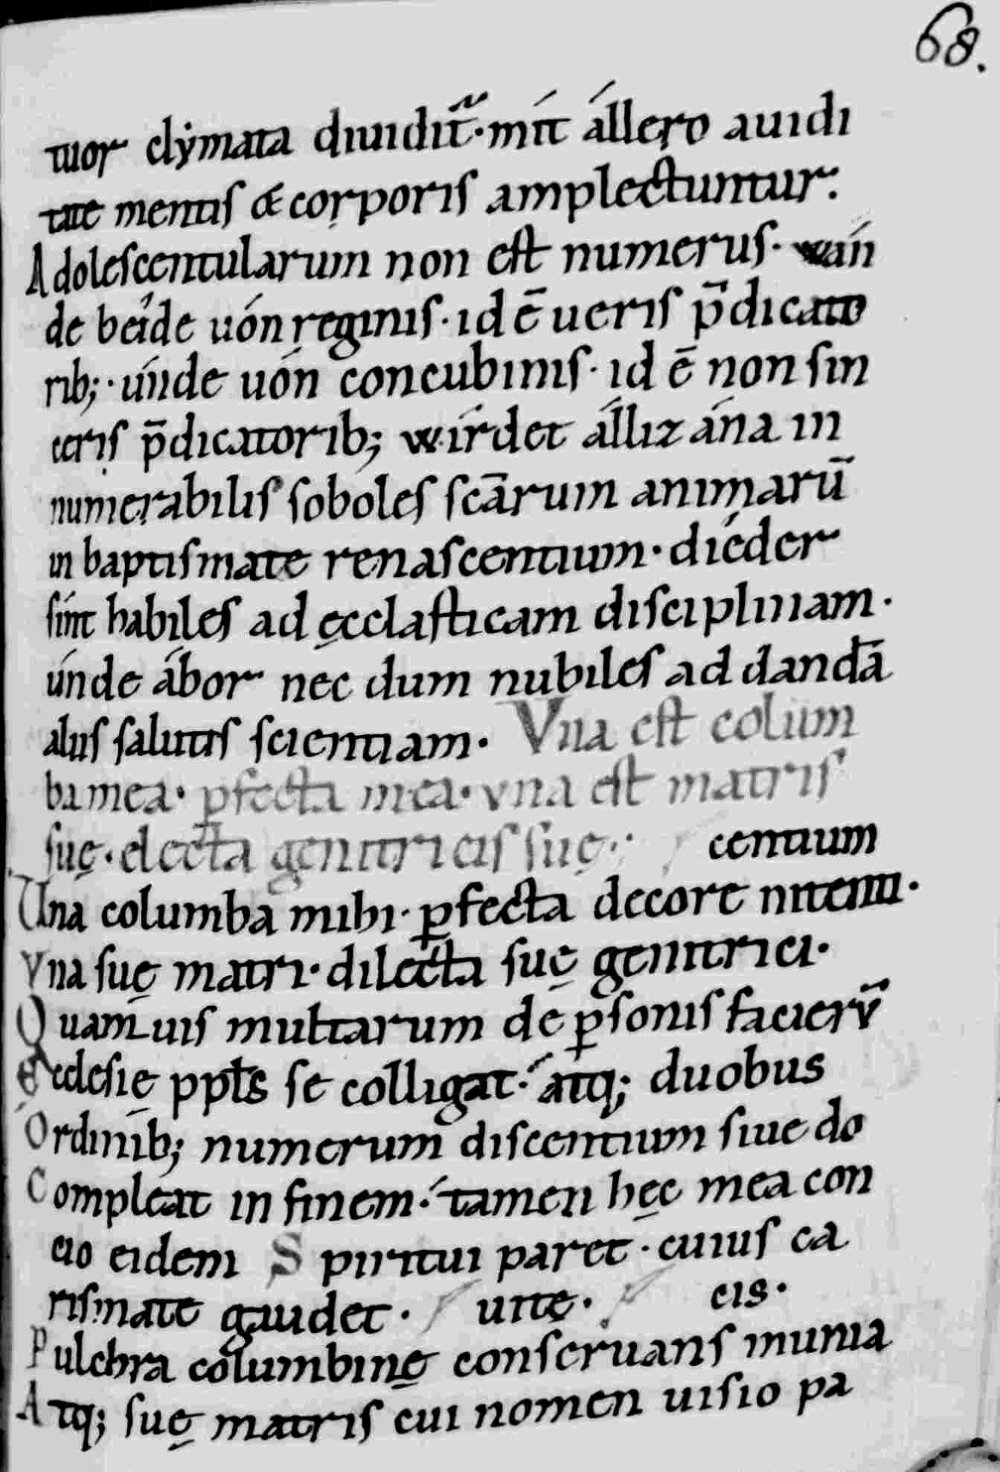 68.
tuor clẏmata diuiditᷓ· mít állero auidi
tate mentis & corporis amplectuntur.
Adolescentularum non est numerus· wán
de beíde uón reginis· id ē ueris p̄dicato
rib;· únde uón concubinis· id ē non sin
ceris p̄dicatorib; wírdet állizána in
numerabilis soboles scārum animarū
in baptismate renascentium· diéder
sínt habiles ad ęcclasticam disciplinam·
únde ábor nec dum nubiles ad dandā
aliis salutis scientiam· Vna est colum
ba mea· ꝑfecta mea· vna est matris
suę· electa genitricis suę· centium
Una columba mihi· ꝑfecta decore nitenti·
Vna suę matri· dilecta suę genitrici·
Quamuis multarum de ꝑsonis facierū
Ęcclesię ppłs se colligat· atq; duobus
Ordinib; numerum discentium siue do
Compleat in finem· tamen hęc mea con
cio eidem Spiritui paret· cuius ca
rismate gaudet· uitę· cis·
Pulchra columbinę conseruans munia
Atq; suę matris cui nomen uisio pa